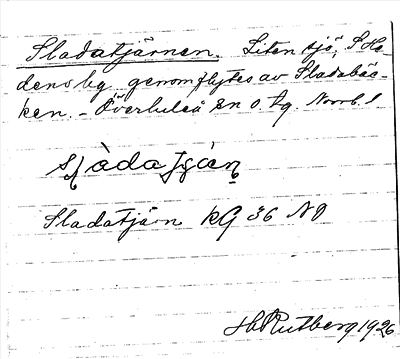 Sladatjärnen. Liten sjö, S He
dens by genomflytes av Sladabäc-
ken. - Överluleå sn o. tg. Norrb. l
Sladatjärn KG 36 NO
HRutberg 1926